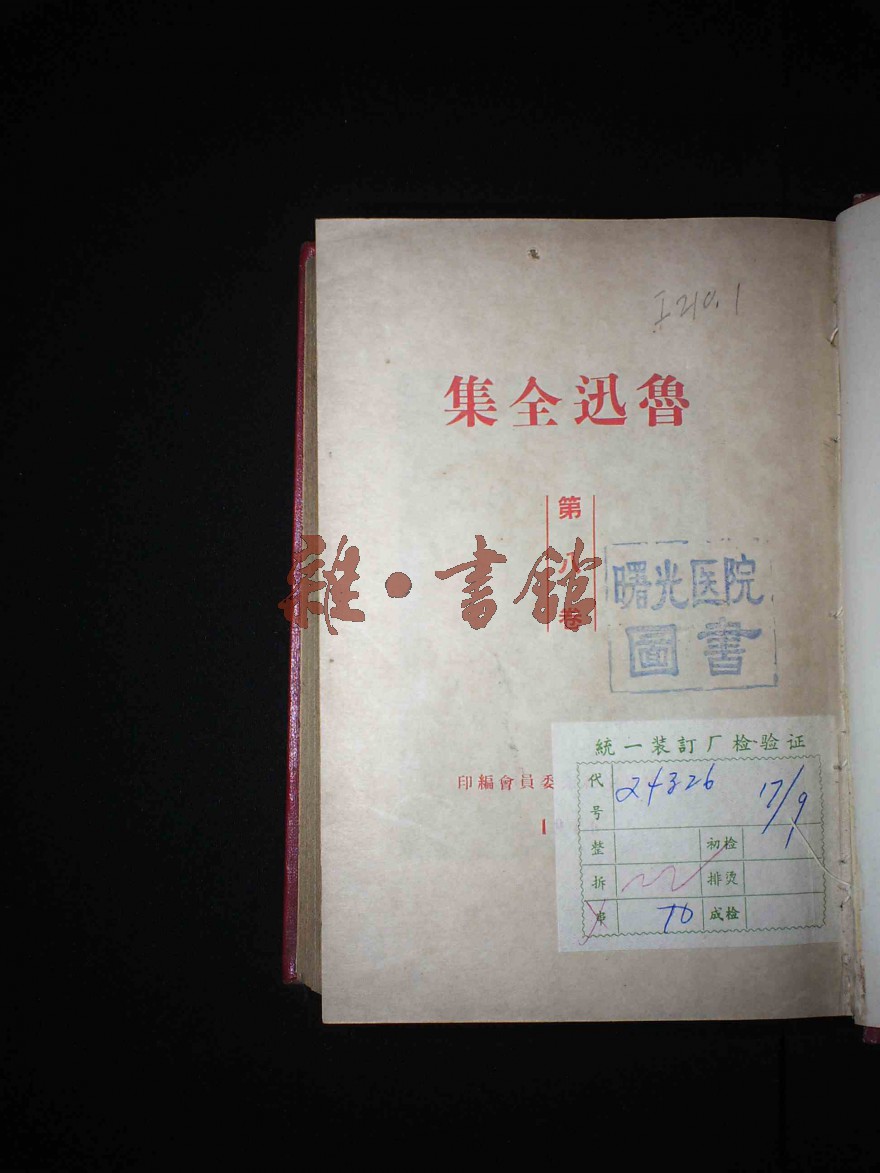 I210.1
魯迅全集
第八卷
雜·書館
曙光医院
圖書
委員會編印
統一装訂厂检验证
代号 24326 17/9
整 初检 1
拆 排烫
串 70 成检